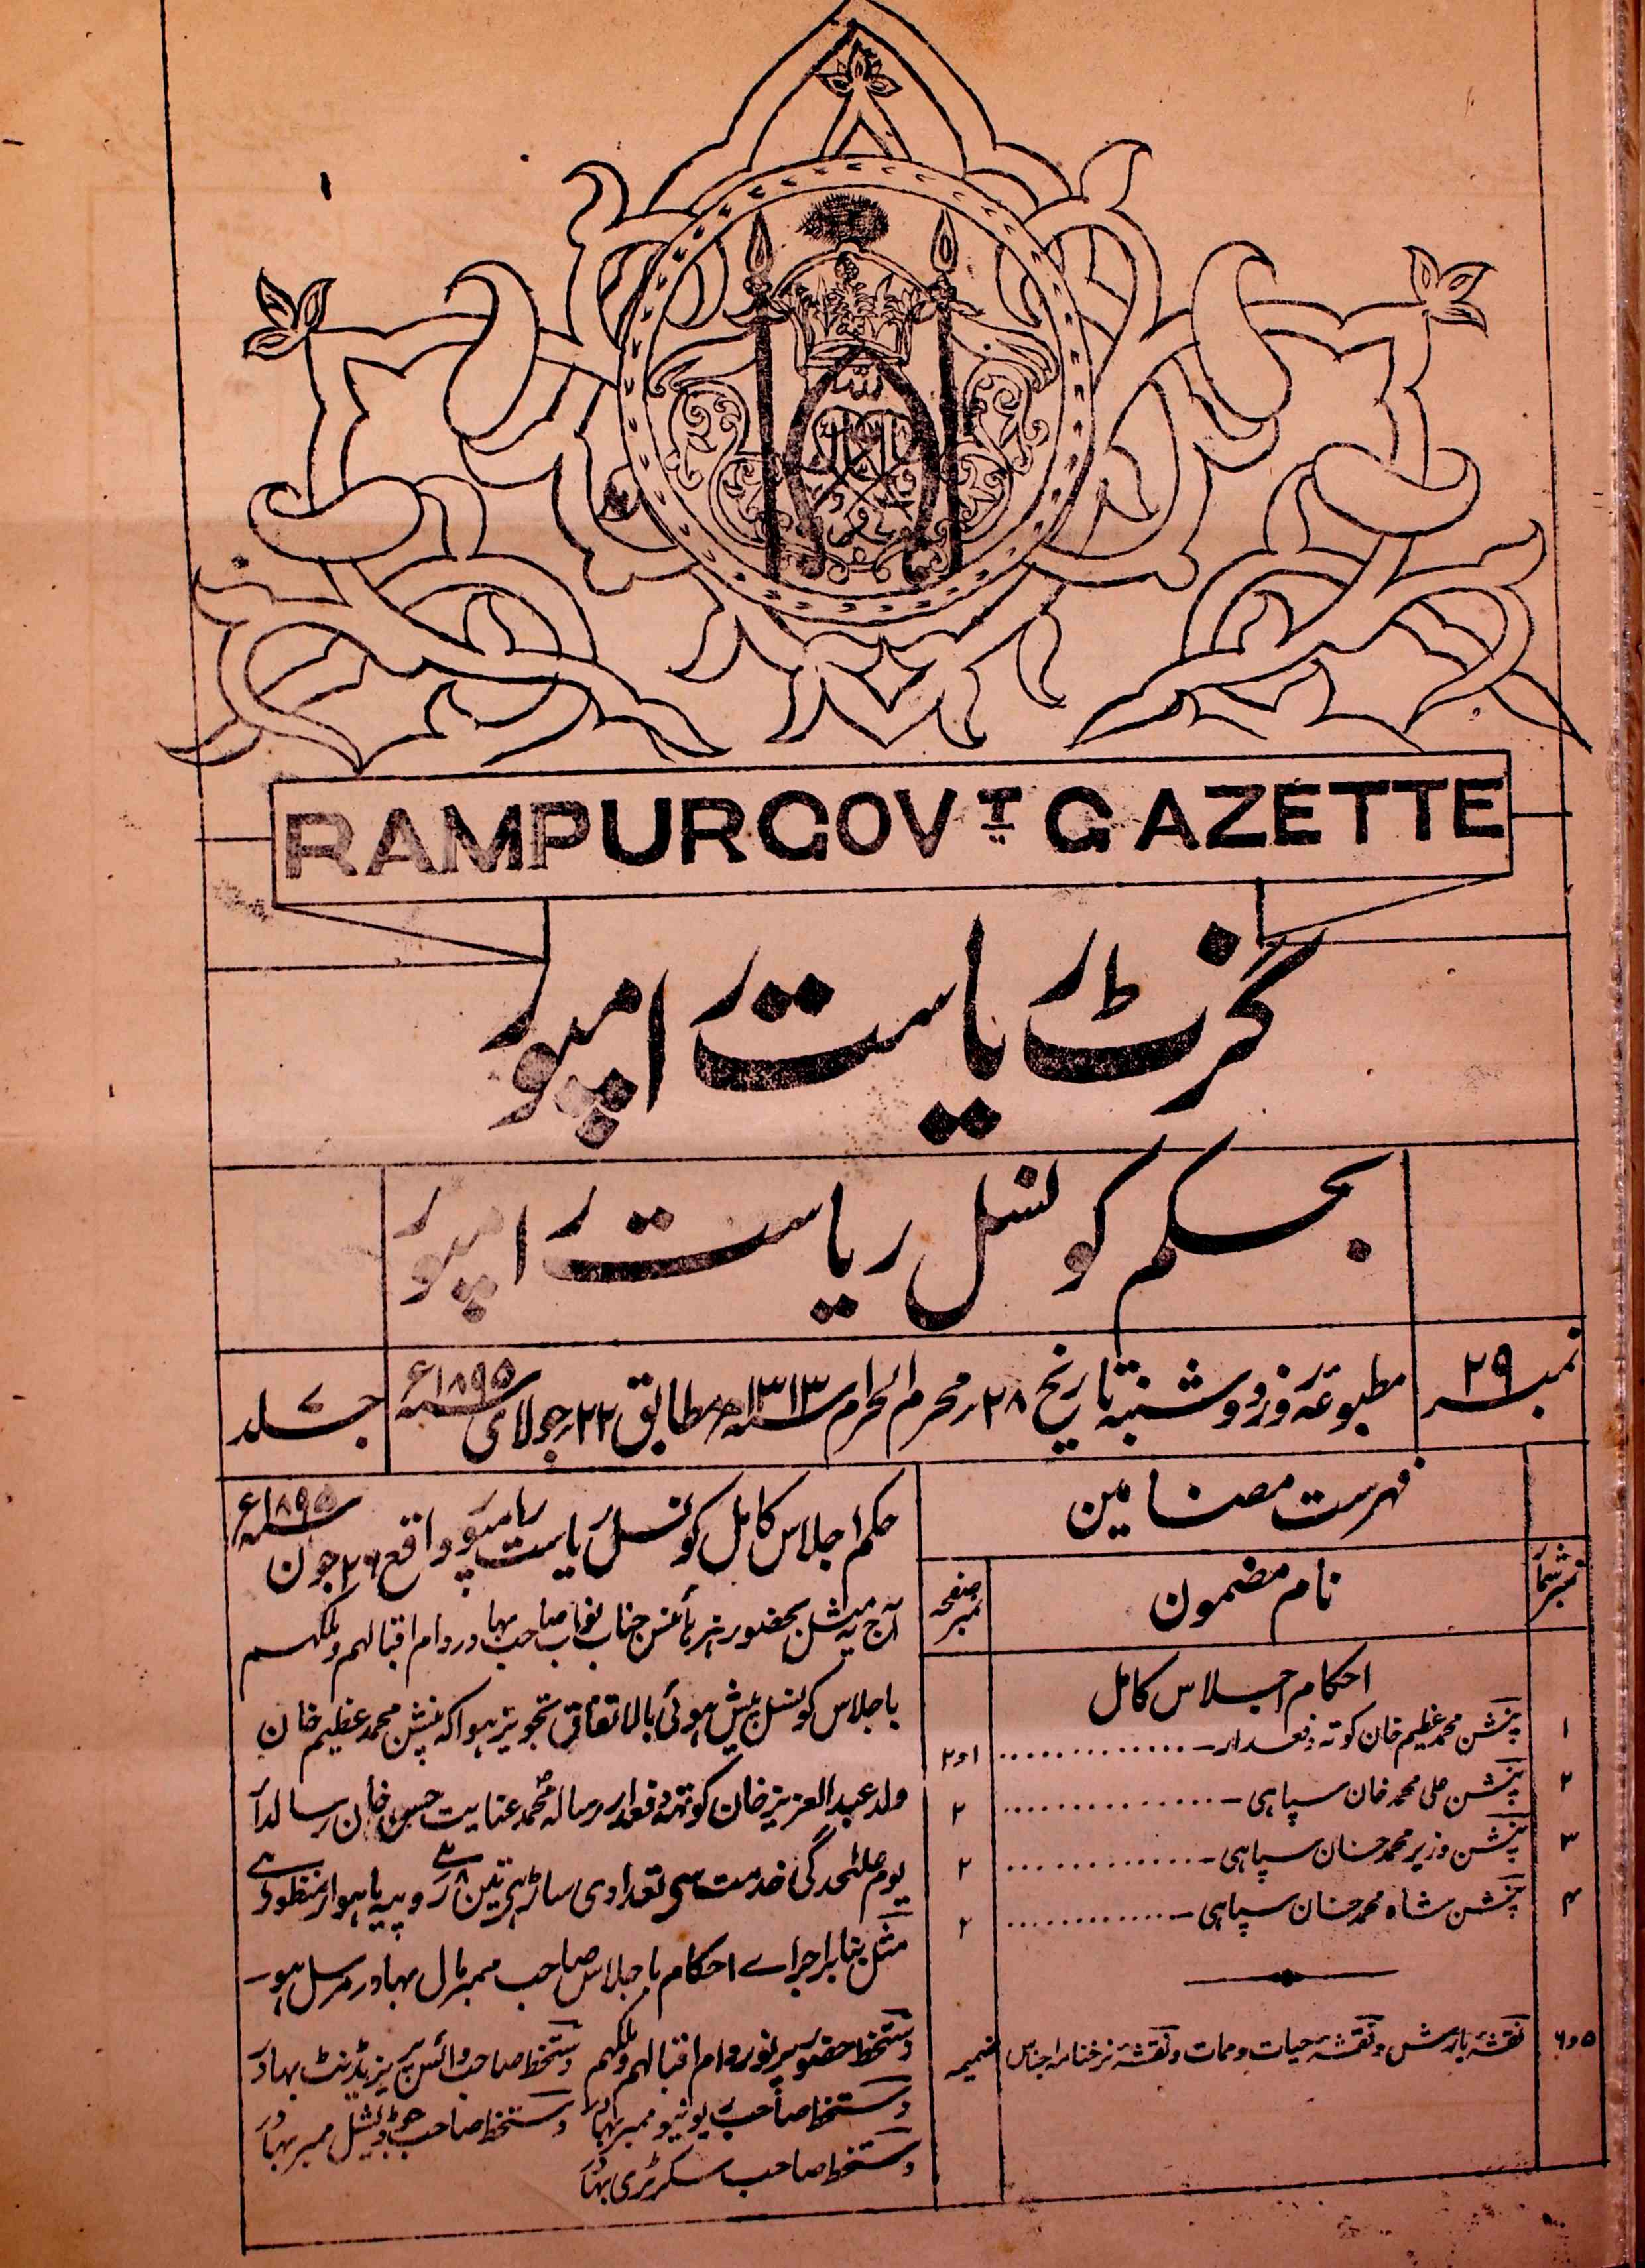 RAMPUR GOVT GAZETTE
گزٹ ریاست رامپور
بحکم کونسل ریاست رامپور
نمبر ۲۹
مطبوعہ روز دوشنبہ تاریخ ۲۸ محرم الحرام سنہ ۱۳۱۳ھ مطابق ۲۲ جولائی سنہ ۱۸۹۵ء
جلد ۷
فہرست مضامین
نمبر شمار
نام مضمون
صفحہ نمبر
احکام اجلاس کامل
۱ پنشن محمد عظیم خان کوتہ دفعدار ۱و۲
۲ پنشن علی محمد خان سپاہی ۲
۳ پنشن وزیر محمد خان سپاہی ۲
۴ پنشن شاہ محمد خان سپاہی ۲
۵و۶ نقشہ بارش و نقشہ حیات و ممات و نقشہ نرخنامہ اجناس ضمیمہ
حکم اجلاس کامل کونسل ریاست رامپور واقع ۲۶ جون سنہ ۱۸۹۵ء
آج یہ مثل بحضور ہز ہائنس جناب نواب صاحب بہادر دام اقبالہم و ملکہم
باجلاس کونسل پیش ہوئی بالاتفاق تجویز ہوا کہ پنشن محمد عظیم خان
ولد عبدالعزیز خان کوتہ دفعدار رسالہ محمد عنایت حسین خان رسالدار
یوم علٰحدگی خدمت سی تعدادی ساڑہی تین روپیہ ماہوار منظور ہے
مثل بنابر اجراے احکام باجلاس صاحب ممبر مال بہادر مرسل ہو
دستخط حضور پرنور دام اقبالہم و ملکہم دستخط صاحب وائس پریزیڈنٹ بہادر
دستخط صاحب ریونیو ممبر بہادر دستخط صاحب جوڈیشل ممبر بہادر
دستخط صاحب سکرٹری بہادر